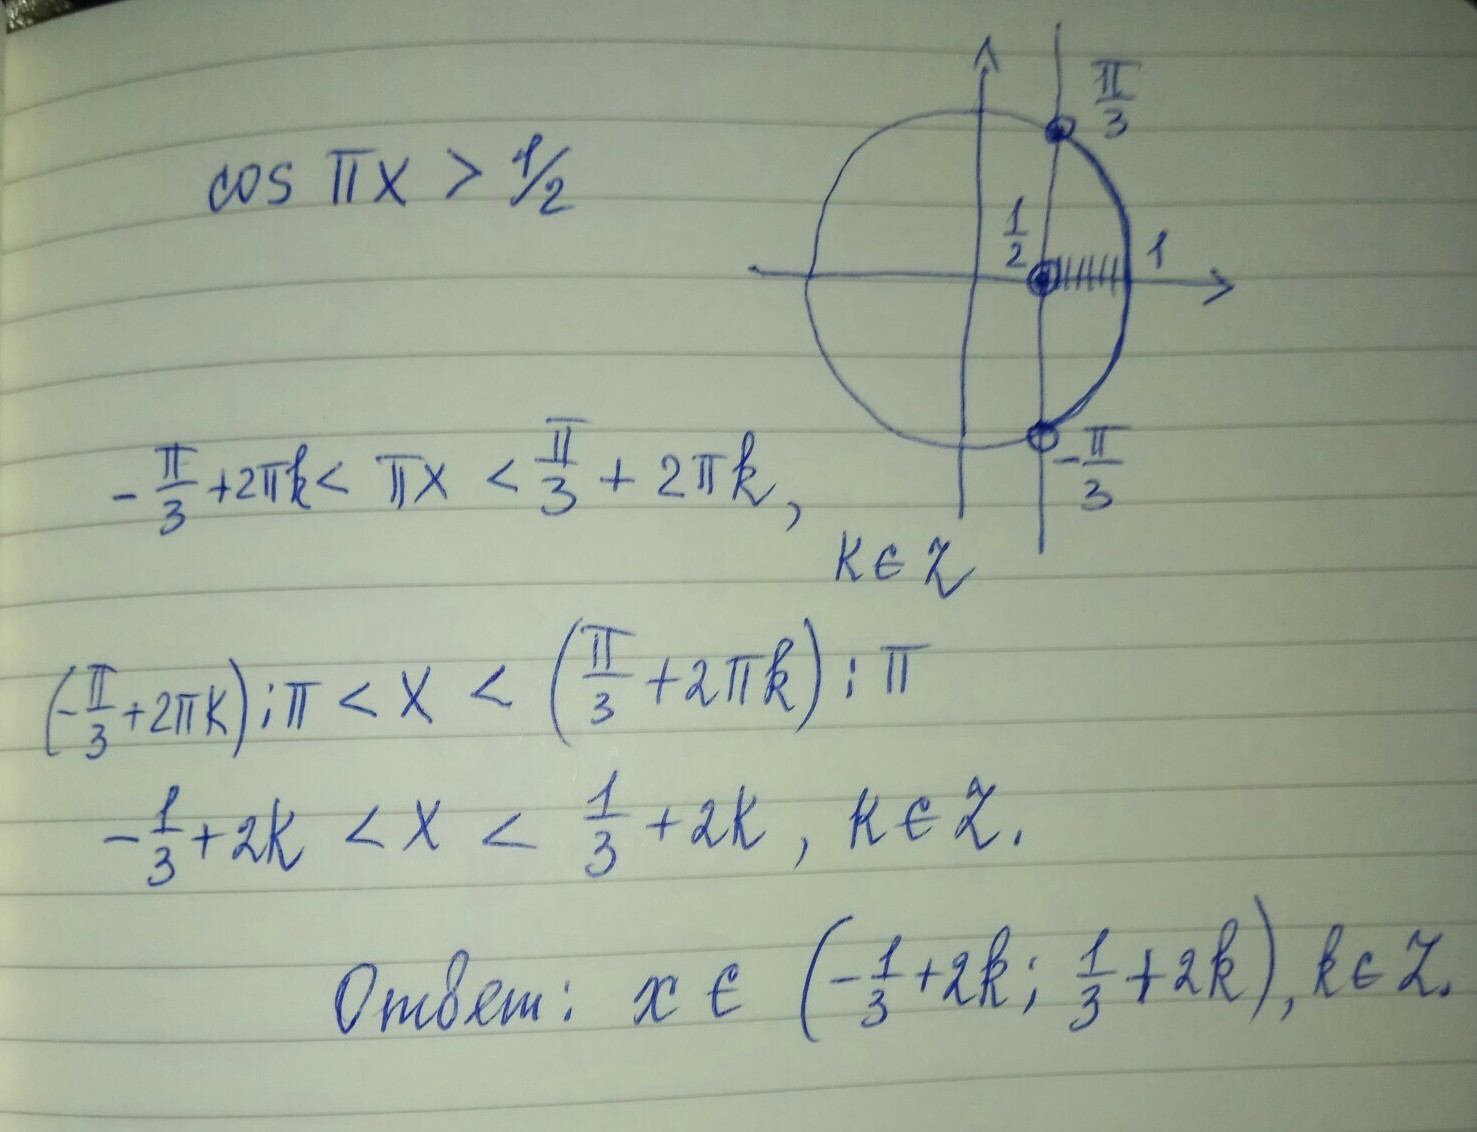 cos πx > 1/2
π/3
1/2
1
-π/3
-π/3 +2πk < πx < π/3 + 2πk,
k∈Z
(-π/3 +2πk):π < x < (π/3 +2πk):π
-1/3 +2k < x < 1/3 +2k, k∈Z.
Ответ: x∈ (-1/3 +2k; 1/3 +2k), k∈Z.